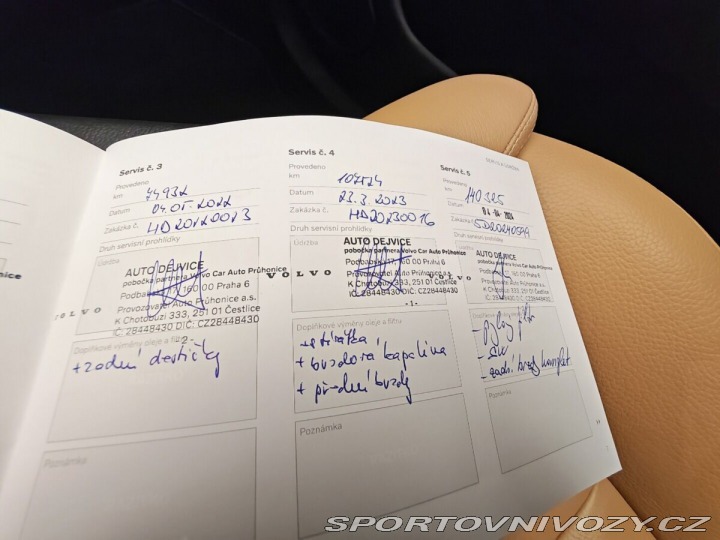 SERVIS A ÚDRŽBA
Servis č. 3
Provedeno
km 74932
Datum 04.05.2022
Zakázka č. HD20220023
Druh servisní prohlídky
Údržba
AUTO DEJVICE
pobočka partnera Volvo Car Auto Průhonice
160 00 Praha 6
Provozovatel Auto Průhonice a.s.
K Chotobuzi 333, 251 01 Čestlice
IČ: 28448430 DIČ: CZ28448430
-2-
VOLVO
Doplňkové výměny oleje a filtru
+ zadní destičky
Poznámka
Servis č. 4
Provedeno
km
Datum 23.3.2023
Zakázka č. HD20230016
Druh servisní prohlídky
Údržba
AUTO DEJVICE
pobočka partnera Volvo Car Auto Průhonice
160 00 Praha 6
Provozovatel Auto Průhonice a.s.
K Chotobuzi 333, 251 01 Čestlice
IČ: 28448430 DIČ: CZ28448430
-1-
VOLVO
Doplňkové výměny oleje a filtru
+ brzdová kapalina
+ přední brzdy
Poznámka
Servis č. 5
Provedeno
km 140 325
Datum
Zakázka č.
Druh servisní prohlídky
Údržba
AUTO DEJVICE
VOLVO
- pylový filtr
- zadní brzdy komplet
Poznámka
SPORTOVNIVOZY.CZ